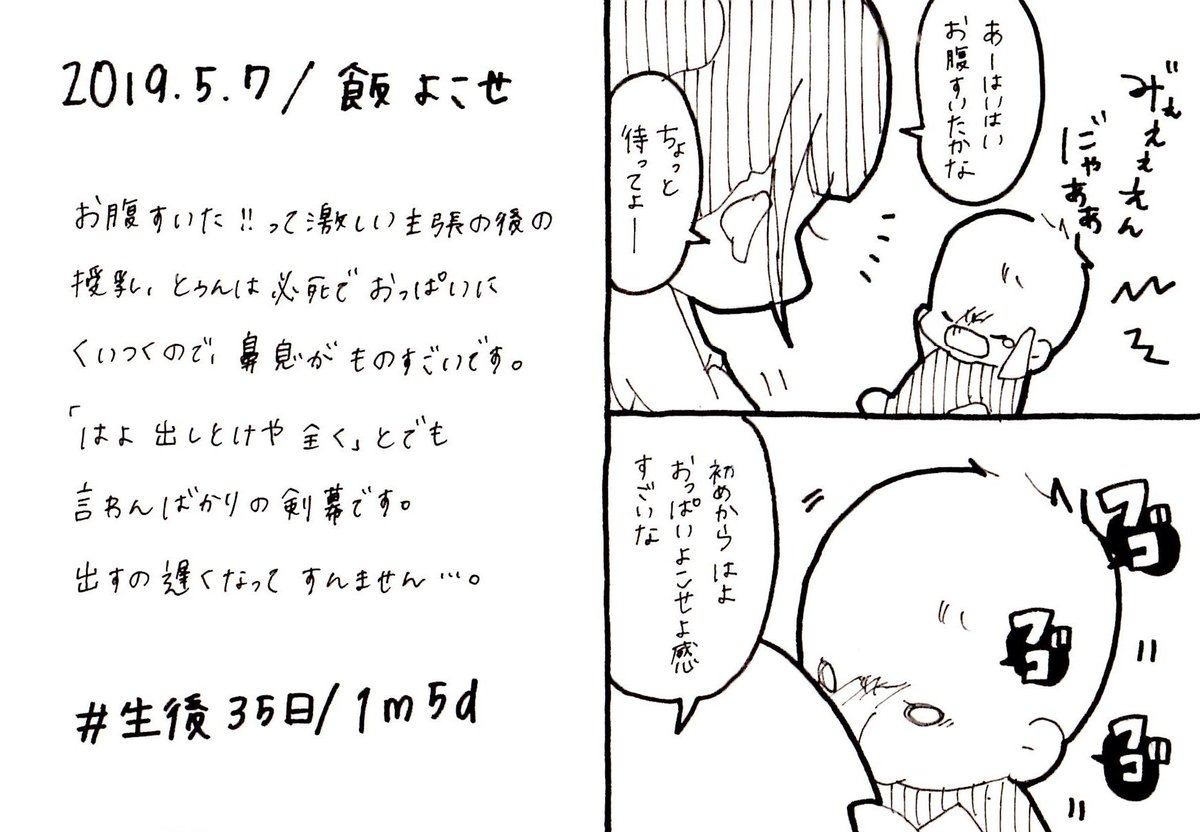 2019.5.7/飯よこせ
お腹すいた!!って激しい主張の後の
授乳、とぅんは必死でおっぱいに
くいつくので、鼻息がものすごいです。
「はよ出しとけや全く」とでも
言わんばかりの剣幕です。
出すの遅くなってすんません…。
#生後35日/1m5d
み゛ぇぇぇえん
に゛ゃあぁあ
あーはいはい
お腹すいたかな
ちょっと
待ってよー
初めからはよ
おっぱいよこせよ感
すごいな
フゴ
フゴ
フゴ